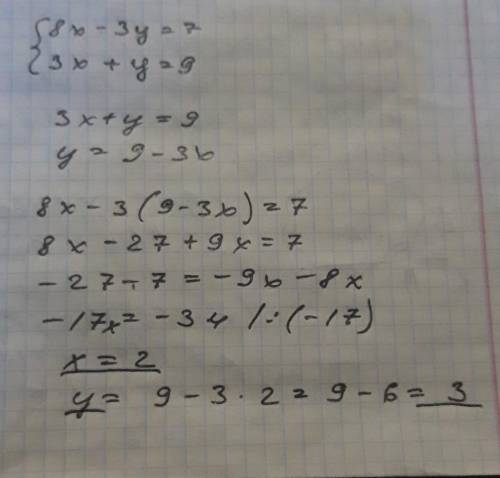 {8x - 3y = 7
{3x + y = 9
3x + y = 9
y = 9 - 3x
8x - 3(9 - 3x) = 7
8x - 27 + 9x = 7
-27 - 7 = -9x - 8x
-17x = -34 /:(-17)
x = 2
y = 9 - 3 · 2 = 9 - 6 = 3